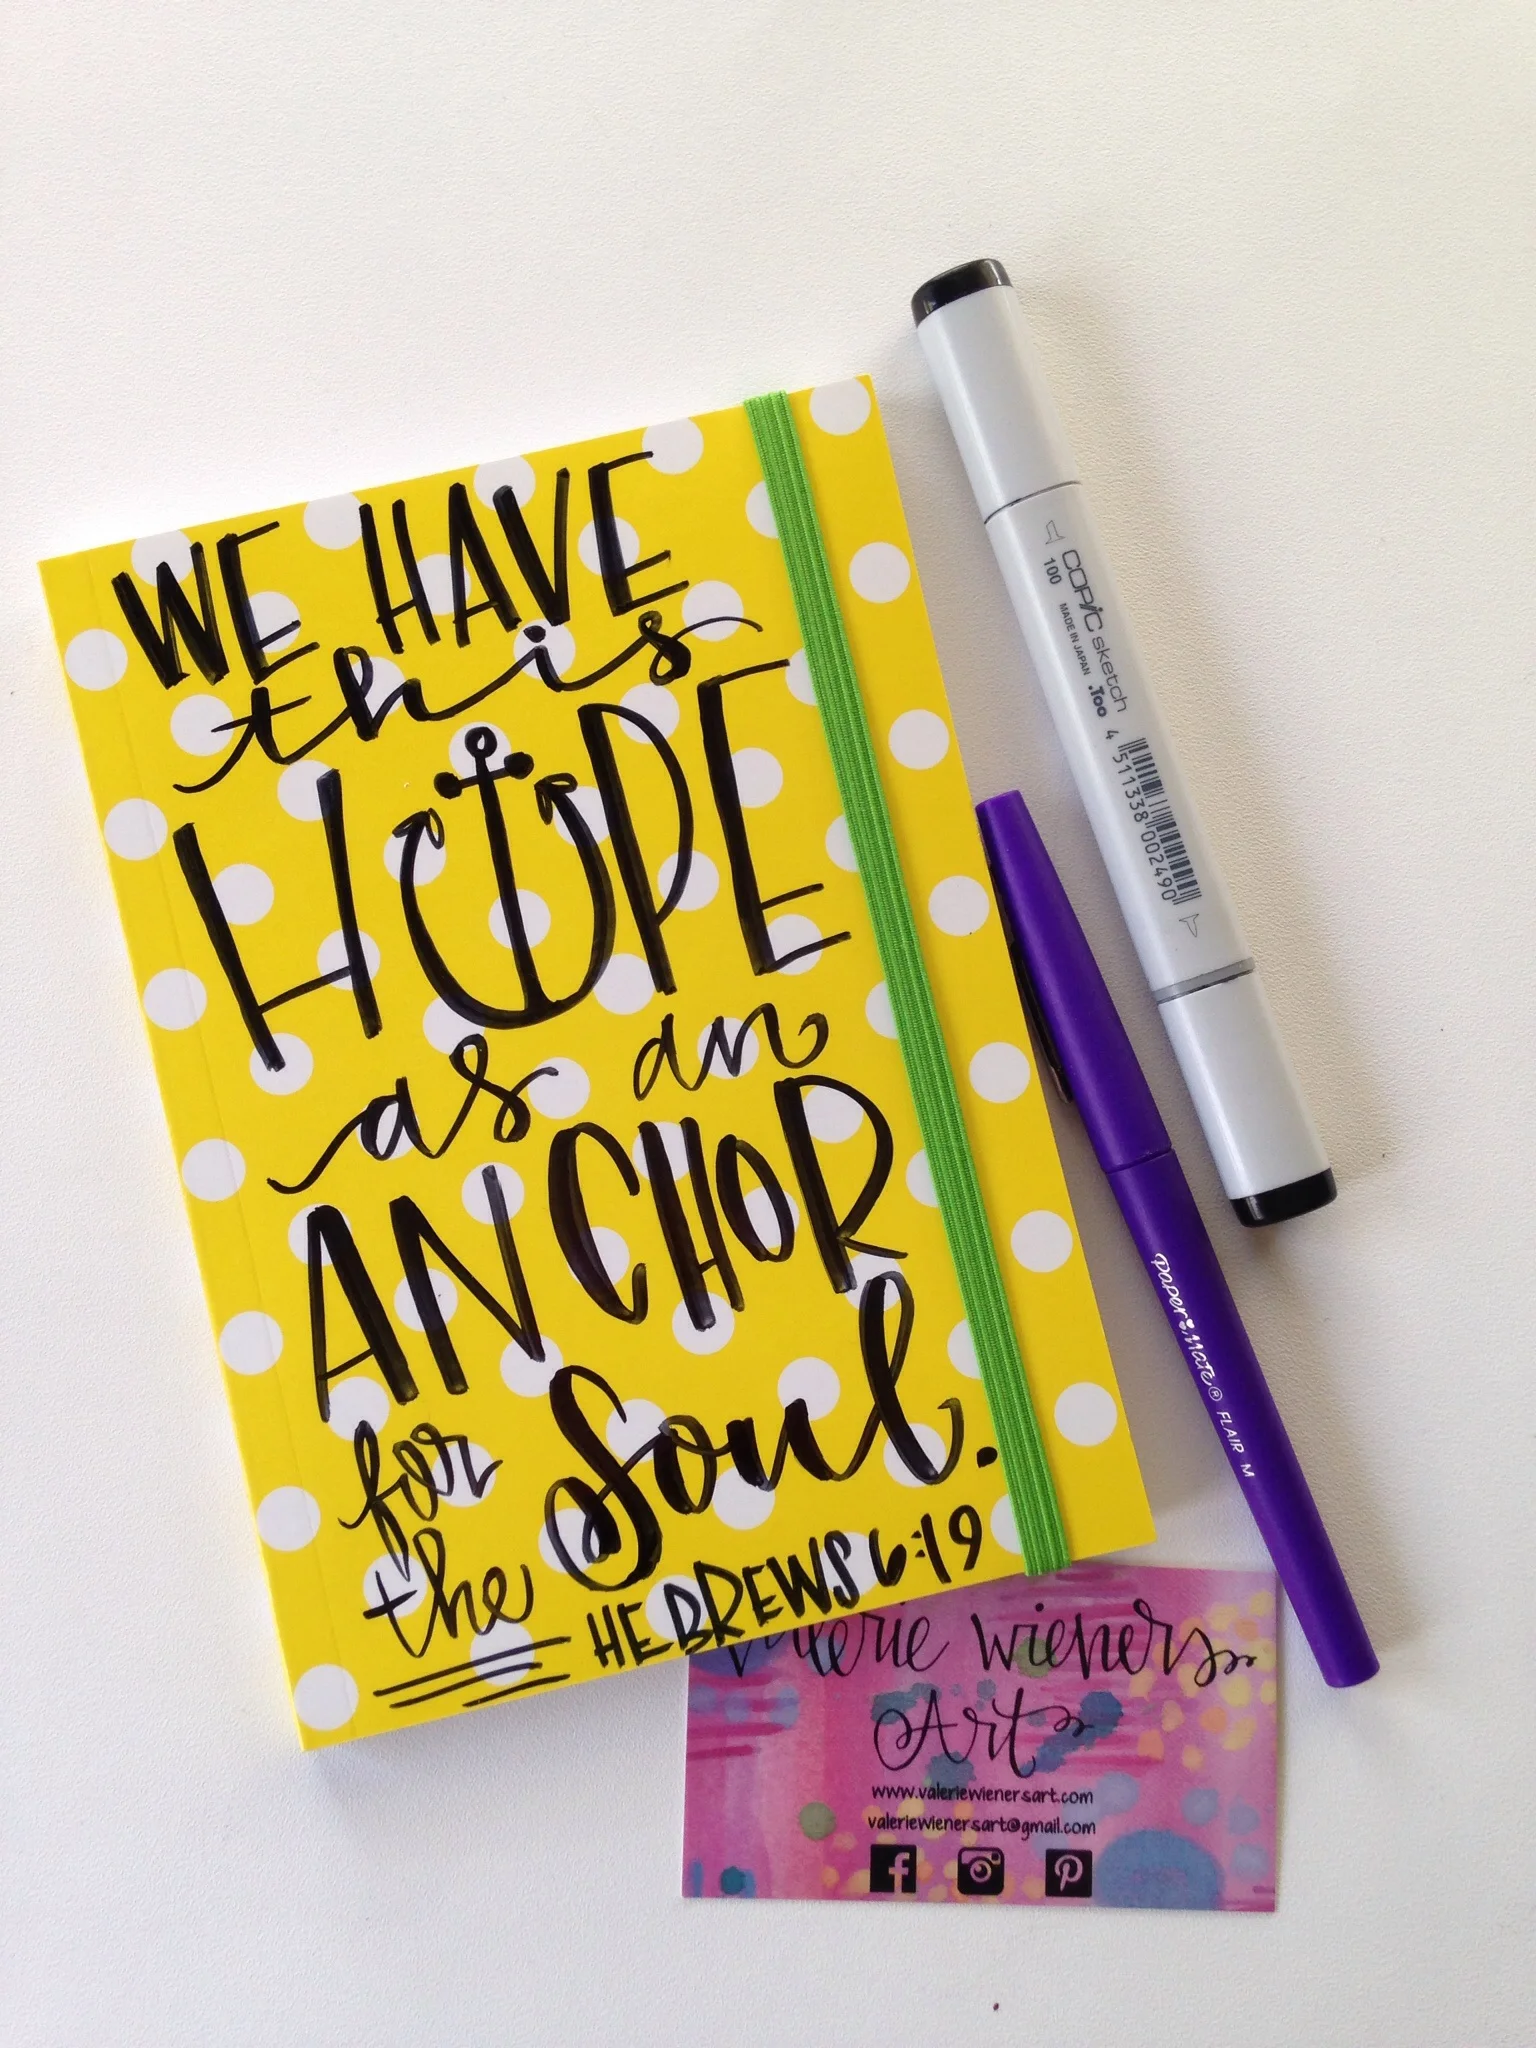 WE HAVE
this
HOPE
as an
ANCHOR
for
the Soul.
HEBREWS 6:19
COPIC sketch
100 MADE IN JAPAN .Too
4 511338 002490
Paper Mate® FLAIR M
Valerie Wieners
Art
www.valeriewienersart.com
valeriewienersart@gmail.com